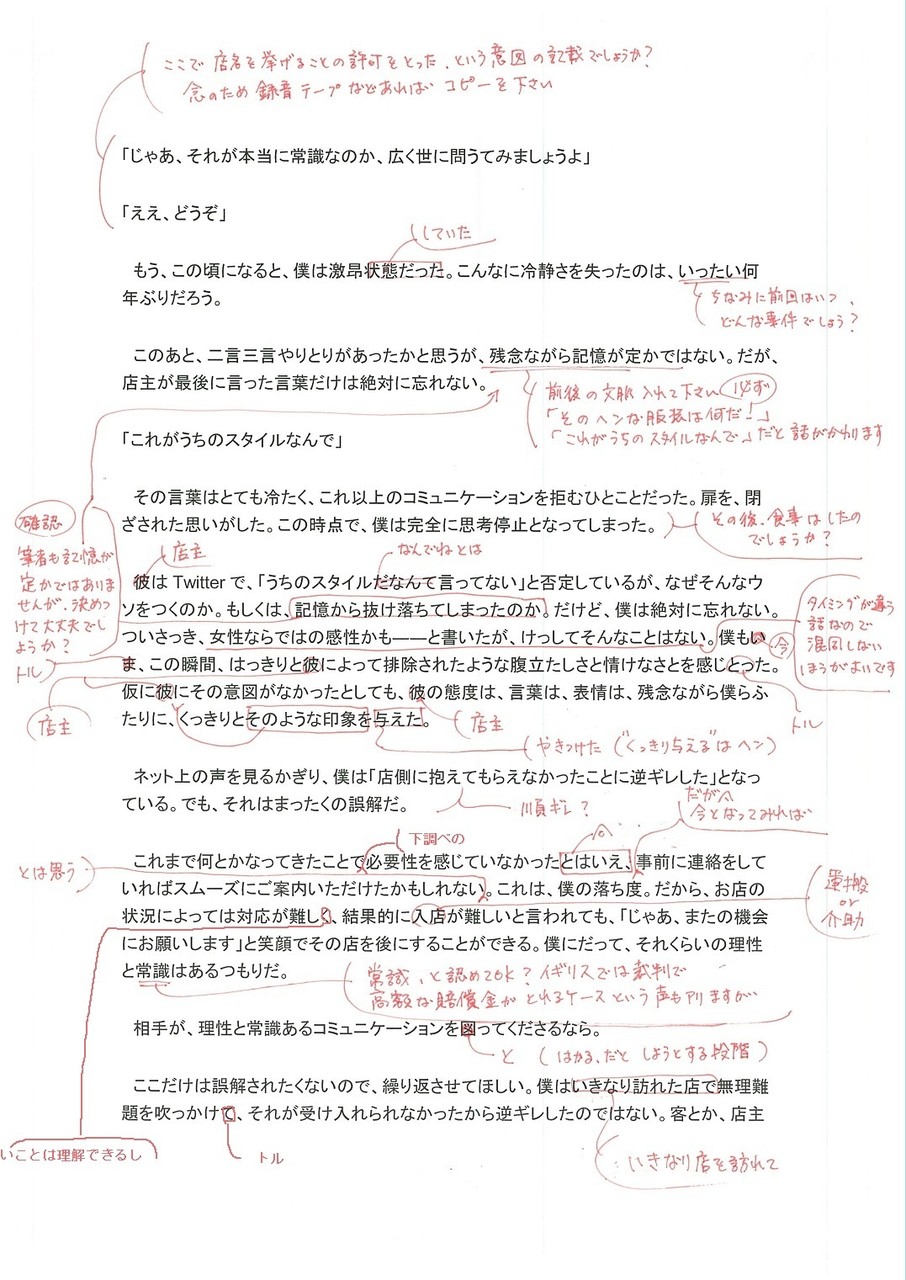 ここで店名を挙げることの許可をとった、という意図の記載でしょうか?
念のため録音テープなどあれば コピーを下さい
「じゃあ、それが本当に常識なのか、広く世に問うてみましょうよ」
「ええ、どうぞ」
していた
もう、この頃になると、僕は激昂状態だった。こんなに冷静さを失ったのは、いったい何
年ぶりだろう。
ちなみに前回はいつ、
どんな事件でしょう?
このあと、二言三言やりとりがあったかと思うが、残念ながら記憶が定かではない。だが、
店主が最後に言った言葉だけは絶対に忘れない。
前後の文脈入れて下さい 必ず
「そのヘンな服装は何だ!」
「これがうちのスタイルなんで」だと話がかわります
「これがうちのスタイルなんで」
その言葉はとても冷たく、これ以上のコミュニケーションを拒むひとことだった。扉を、閉
ざされた思いがした。この時点で、僕は完全に思考停止となってしまった。
その後、食事はしたの
でしょうか?
確認
筆者も記憶が
定かではありま
せんが、決めつ
けて大丈夫でし
ょうか?
トル
店主
なんでねとは
彼は Twitter で、「うちのスタイルだなんて言ってない」と否定しているが、なぜそんなウ
ソをつくのか。もしくは、記憶から抜け落ちてしまったのか。だけど、僕は絶対に忘れない。
ついさっき、女性ならではの感性かも――と書いたが、けっしてそんなことはない。僕もい
ま、この瞬間、はっきりと彼によって排除されたような腹立たしさと情けなさとを感じとった。
仮に彼にその意図がなかったとしても、彼の態度は、言葉は、表情は、残念ながら僕らふ
たりに、くっきりとそのような印象を与えた。
今
タイミングが違う
話なので
混同しない
ほうがよいです
トル
店主
店主
やきつけた("くっきり与える"はヘン)
ネット上の声を見るかぎり、僕は「店側に抱えてもらえなかったことに逆ギレした」となっ
ている。でも、それはまったくの誤解だ。
順ギレ?
だが
今となってみれば
下調べの
とは思う
これまで何とかなってきたことで必要性を感じていなかったとはいえ、事前に連絡をして
いればスムーズにご案内いただけたかもしれない。これは、僕の落ち度。だから、お店の
状況によっては対応が難しく、結果的に入店が難しいと言われても、「じゃあ、またの機会
にお願いします」と笑顔でその店を後にすることができる。僕にだって、それくらいの理性
と常識はあるつもりだ。
運搬
or
介助
常識、と認めてOK?イギリスでは裁判で
高額な賠償金がとれるケースという声もアリますが
相手が、理性と常識あるコミュニケーションを図ってくださるなら。
と (はかる、だと しようとする段階)
ここだけは誤解されたくないので、繰り返させてほしい。僕はいきなり訪れた店で無理難
題を吹っかけて、それが受け入れられなかったから逆ギレしたのではない。客とか、店主
いことは理解できるし
トル
いきなり店を訪れて